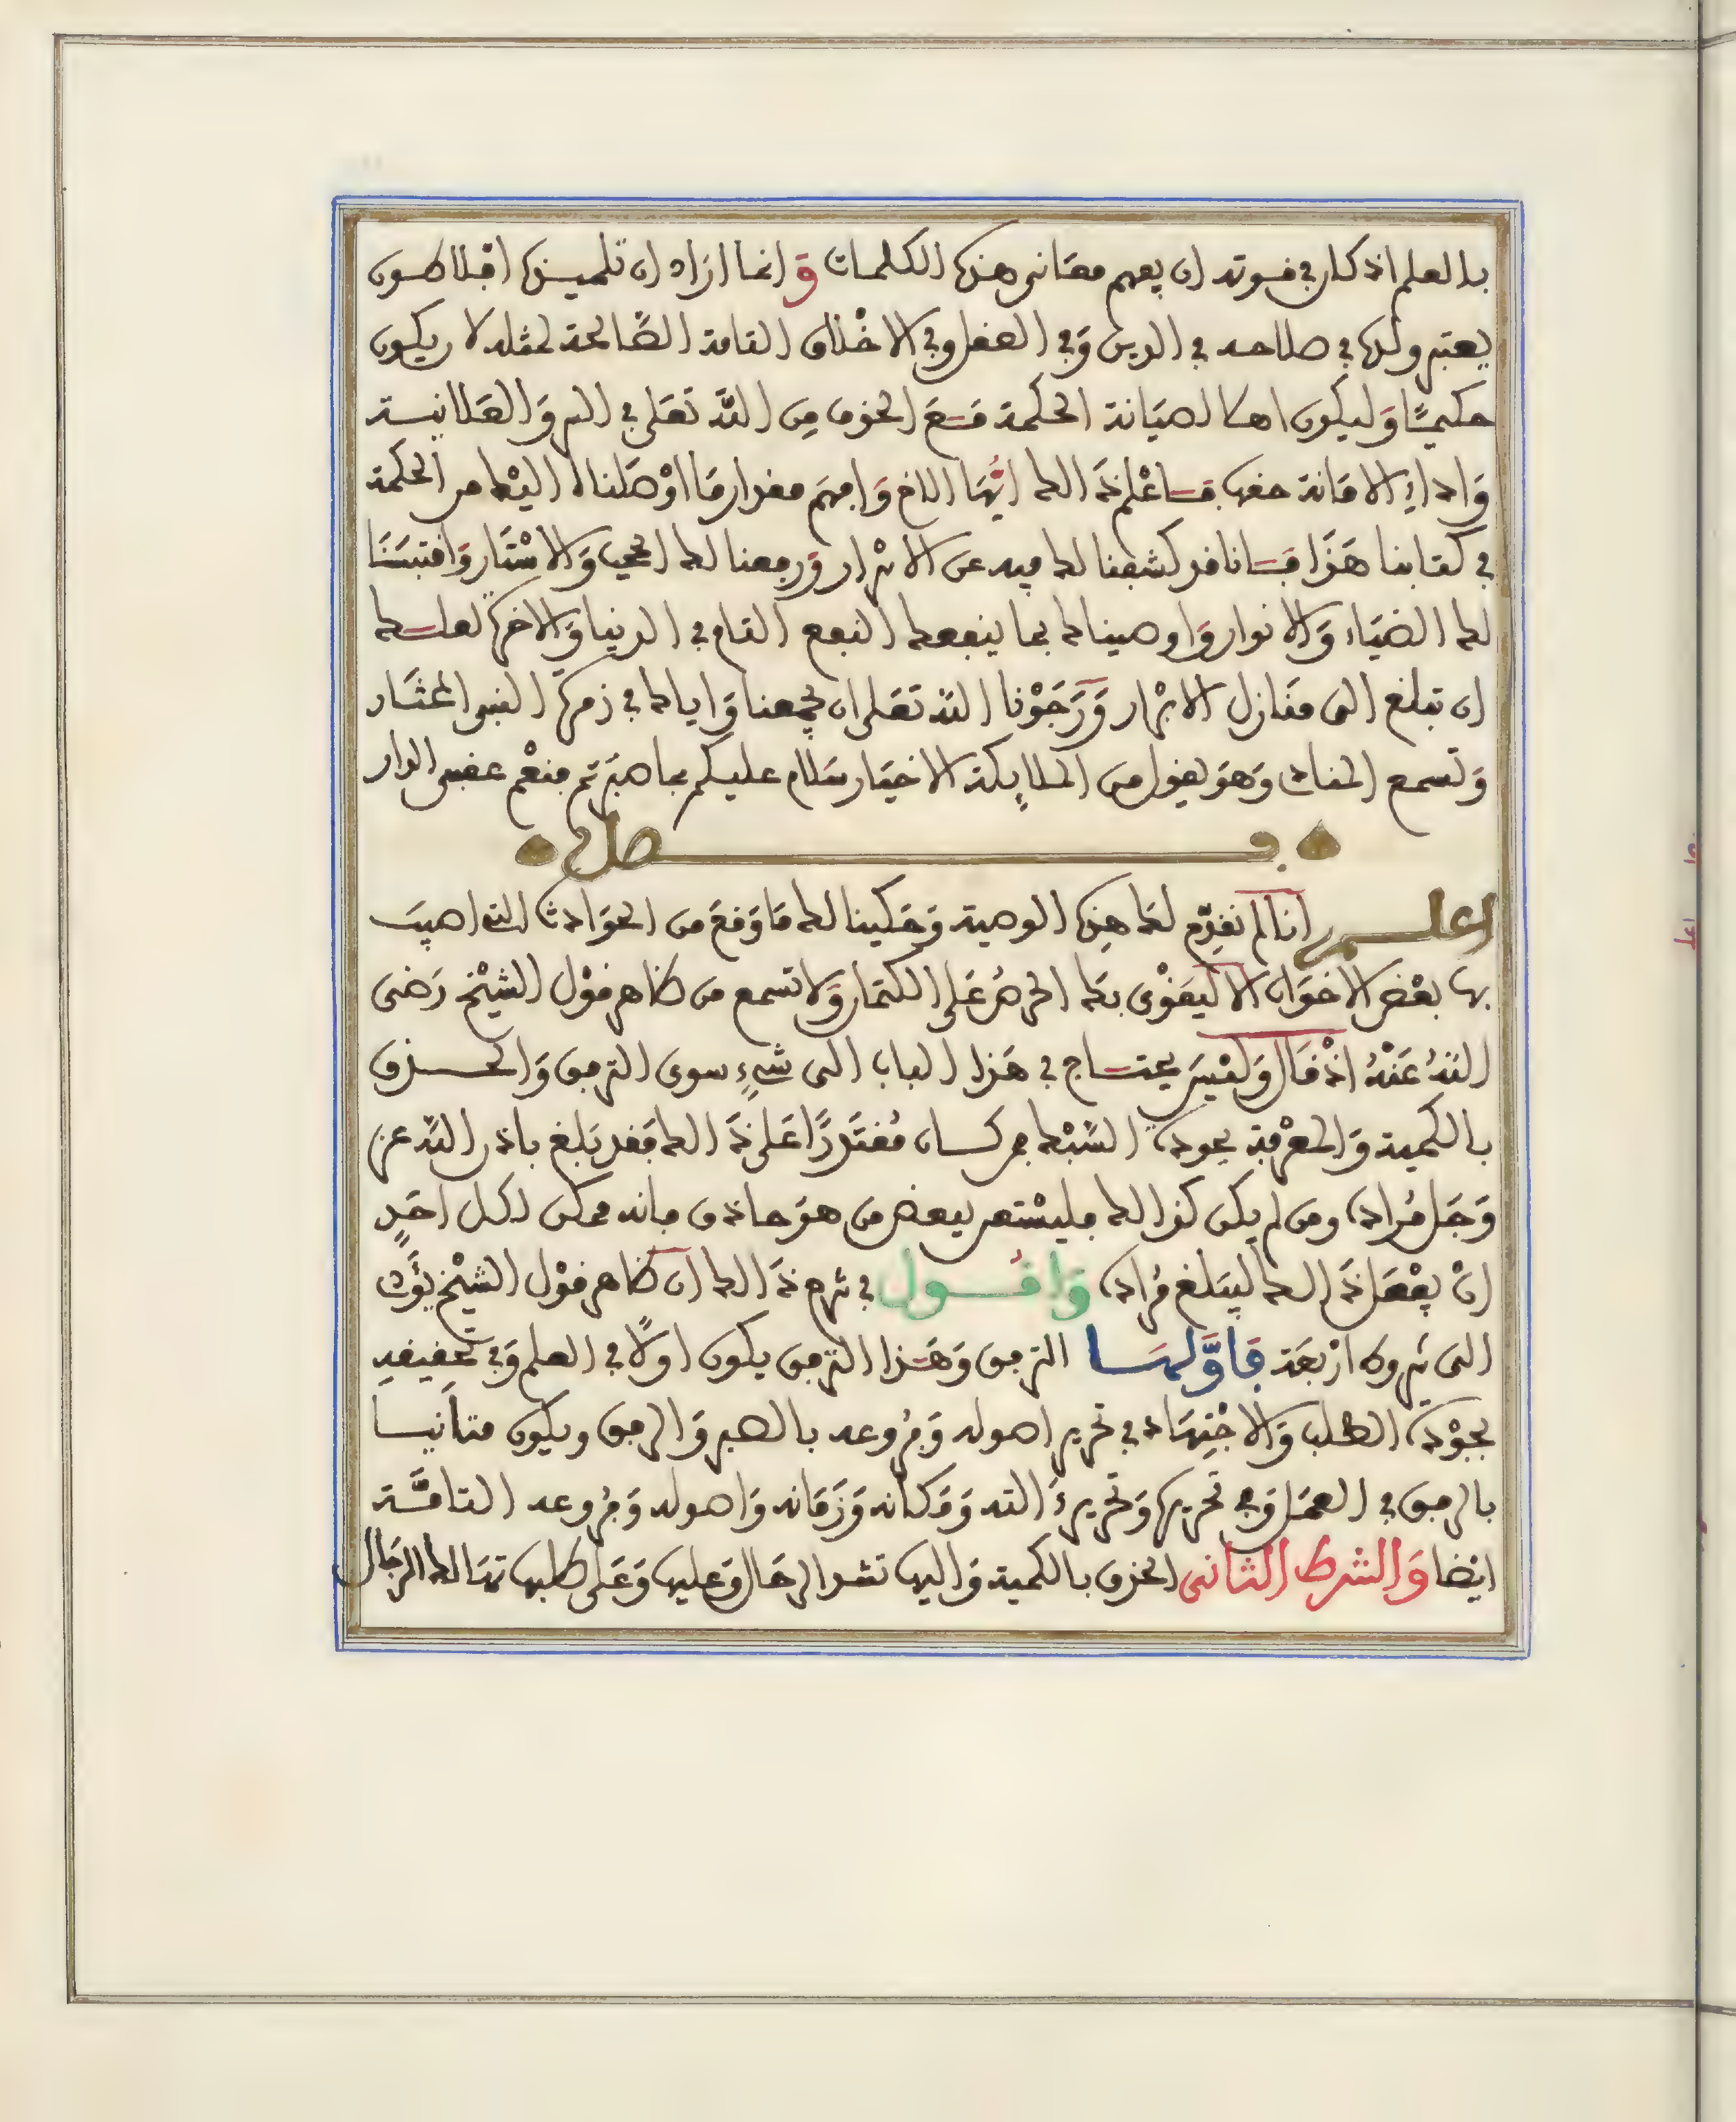 بالعلم اذ كان في قوته ان يفهم معاني هذه الكلمات وانما اراد ان تلميذه افلاطون
يعتبر ولده في صلاحه في الدين وفي العقل وفي الاخلاق التامة الصالحة لمثله لان يكون
حكيمًا وليكون اهلا لصيانة الحكمة مع الخوف من الله تعلى في السر والعلانية
واداء الامانة حقها فاعلم ذلك ايها الاخ وافهم مقدار ما اوصلناه اليك من الحكمة
في كتابنا هذا فانا قد كشفنا لك فيه عن الاسرار ورفعنا لك الحجب والاستار واقتبسنا
لك الضياء والانوار واوصيناك بما ينفعك النفع التام في الدنيا والاخرة لعلك
ان تبلغ الى منازل الابرار ورجونا الله تعلى ان يجمعنا واياك في زمرة النبي المختار
وتسمع المناد وهو يقول من الملايكة الاخيار سلام عليكم بما صبرتم فنعم عقبى الدار
فصل
اعلم انا لم نقدم لك هذه الوصية وحكينا لك ما وقع من الحوادث التي اصيب
بها بعض الاخوان الا ليقوى بك الحرص على الكتمان ولا تسمع من ظاهر قول الشيخ رضي
الله عنه اذ قال وليس يحتاج في هذا الباب الى شيء سوى الترفق والحذق
بالكمية والمعرفة بجودة السبك فمن كان مقتدرًا على ذلك فقد بلغ باذن الله عز
وجل مراده ومن لم يكن كذلك فليستعن ببعض من هو حاذق فانه ممكن لكل احدٍ
ان يفعل ذلك ليبلغ مراده واقول في شرح ذلك ان ظاهر قول الشيخ يؤد
الى شروط اربعة فاولها الترفق وهذا الترفق يكون اولًا في العلم وفي تحقيقه
بجودة الطلب والاجتهاد في تحرير اصوله وفروعه بالصبر والرفق ويكون متأنيا
بالرفق في العمل وفي تحريره وتحرير ءالته ومكانه وزمانه واصوله وفروعه التامة
ايضا والشرط الثاني الحذق بالكمية واليها تشد الرحال وعليها وعلى طلبها تهالك الرجال